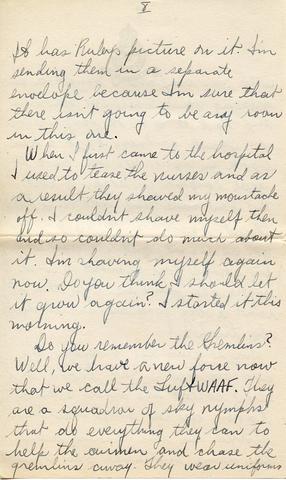 V
It has Ruby's picture on it. I'm
sending them in a separate
envelope because I'm sure that
there isn't going to be any room
in this one.
When I first came to the hospital
I used to tease the nurses and as
a result they shaved my moustache
off. I couldn't shave myself then
and so couldn't do much about
it. I'm shaving myself again
now. Do you think I should let
it grow again? I started it this
morning.
Do you remember the Gremlins?
Well, we have a new force now
that we call the WAAF. They
are a squadron of sky nymphs
that do everything they can to
help the airmen and chase the
gremlins away. They wear uniforms